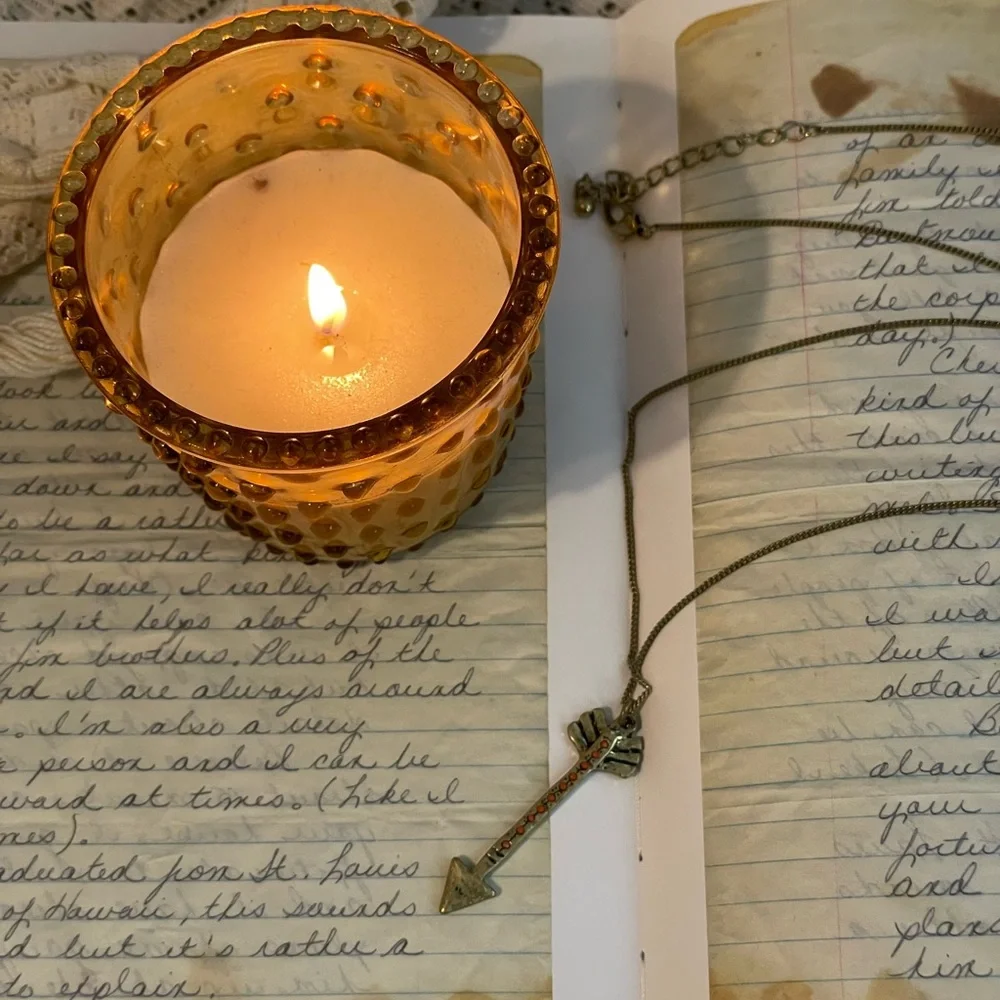 down and
to be a rathe
far as what kin
I have, I really don't
t if it helps alot of people
Jim brothers. Plus of the
nd I are always around
. I'm also a very
e person and I can be
ward at times. (Like I
mes).
aduated from St. Louis
of Hawaii, this sounds
d but it's rather a
to explain.
of an
family
Jim told
that I
the corp
day.)
kind of
this
writing
with
I wa
but i
detail
about
your
fortu
and
plan
him